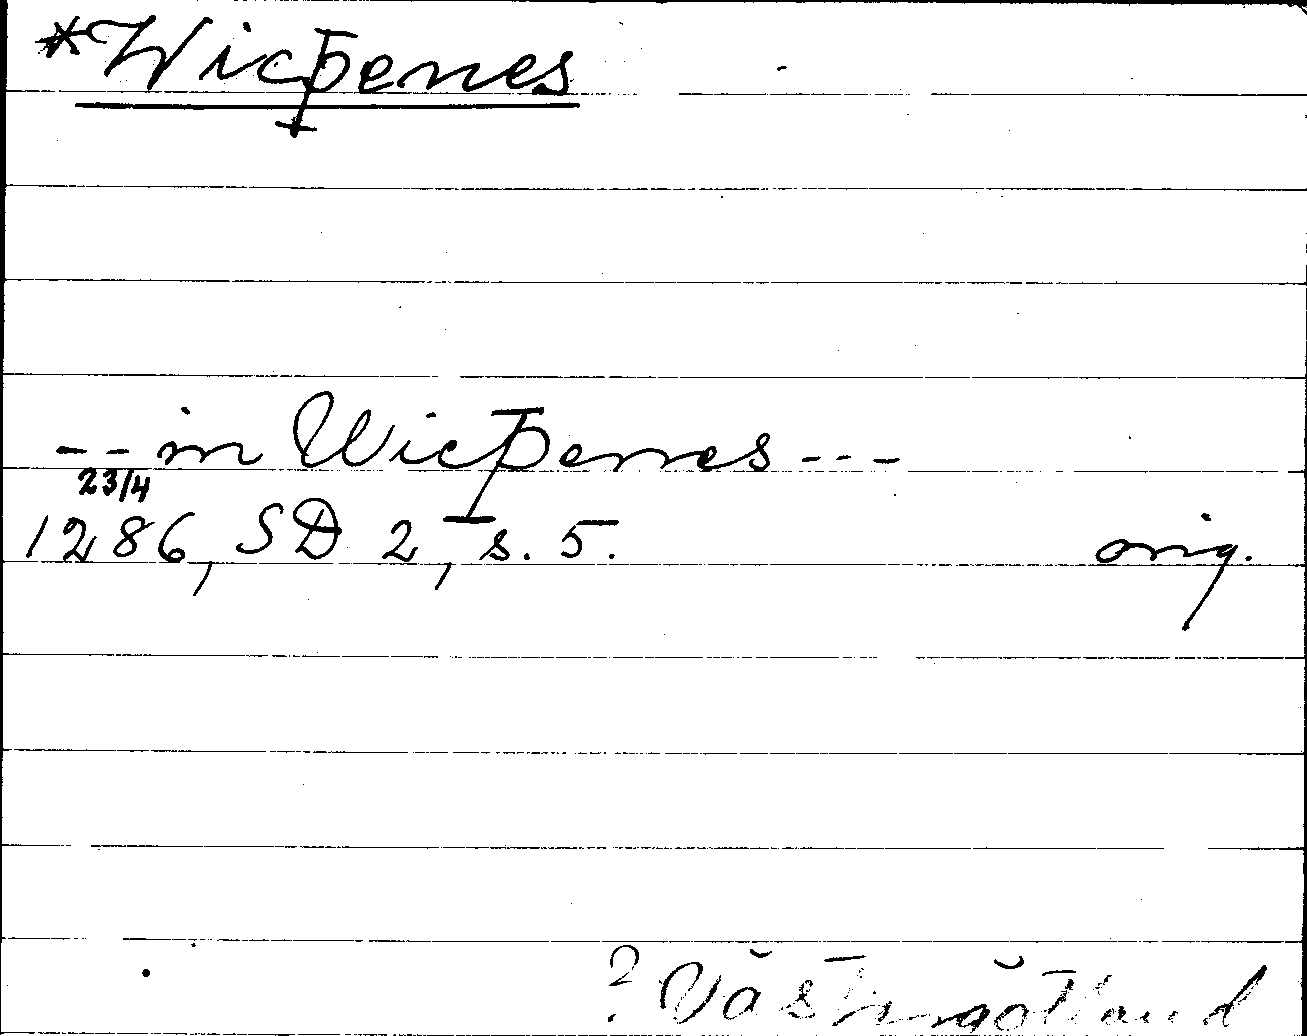 *Wicþenes
-- in Wicþenes ---
23/4
1286, SD 2, s. 5. orig.
? Västergötland